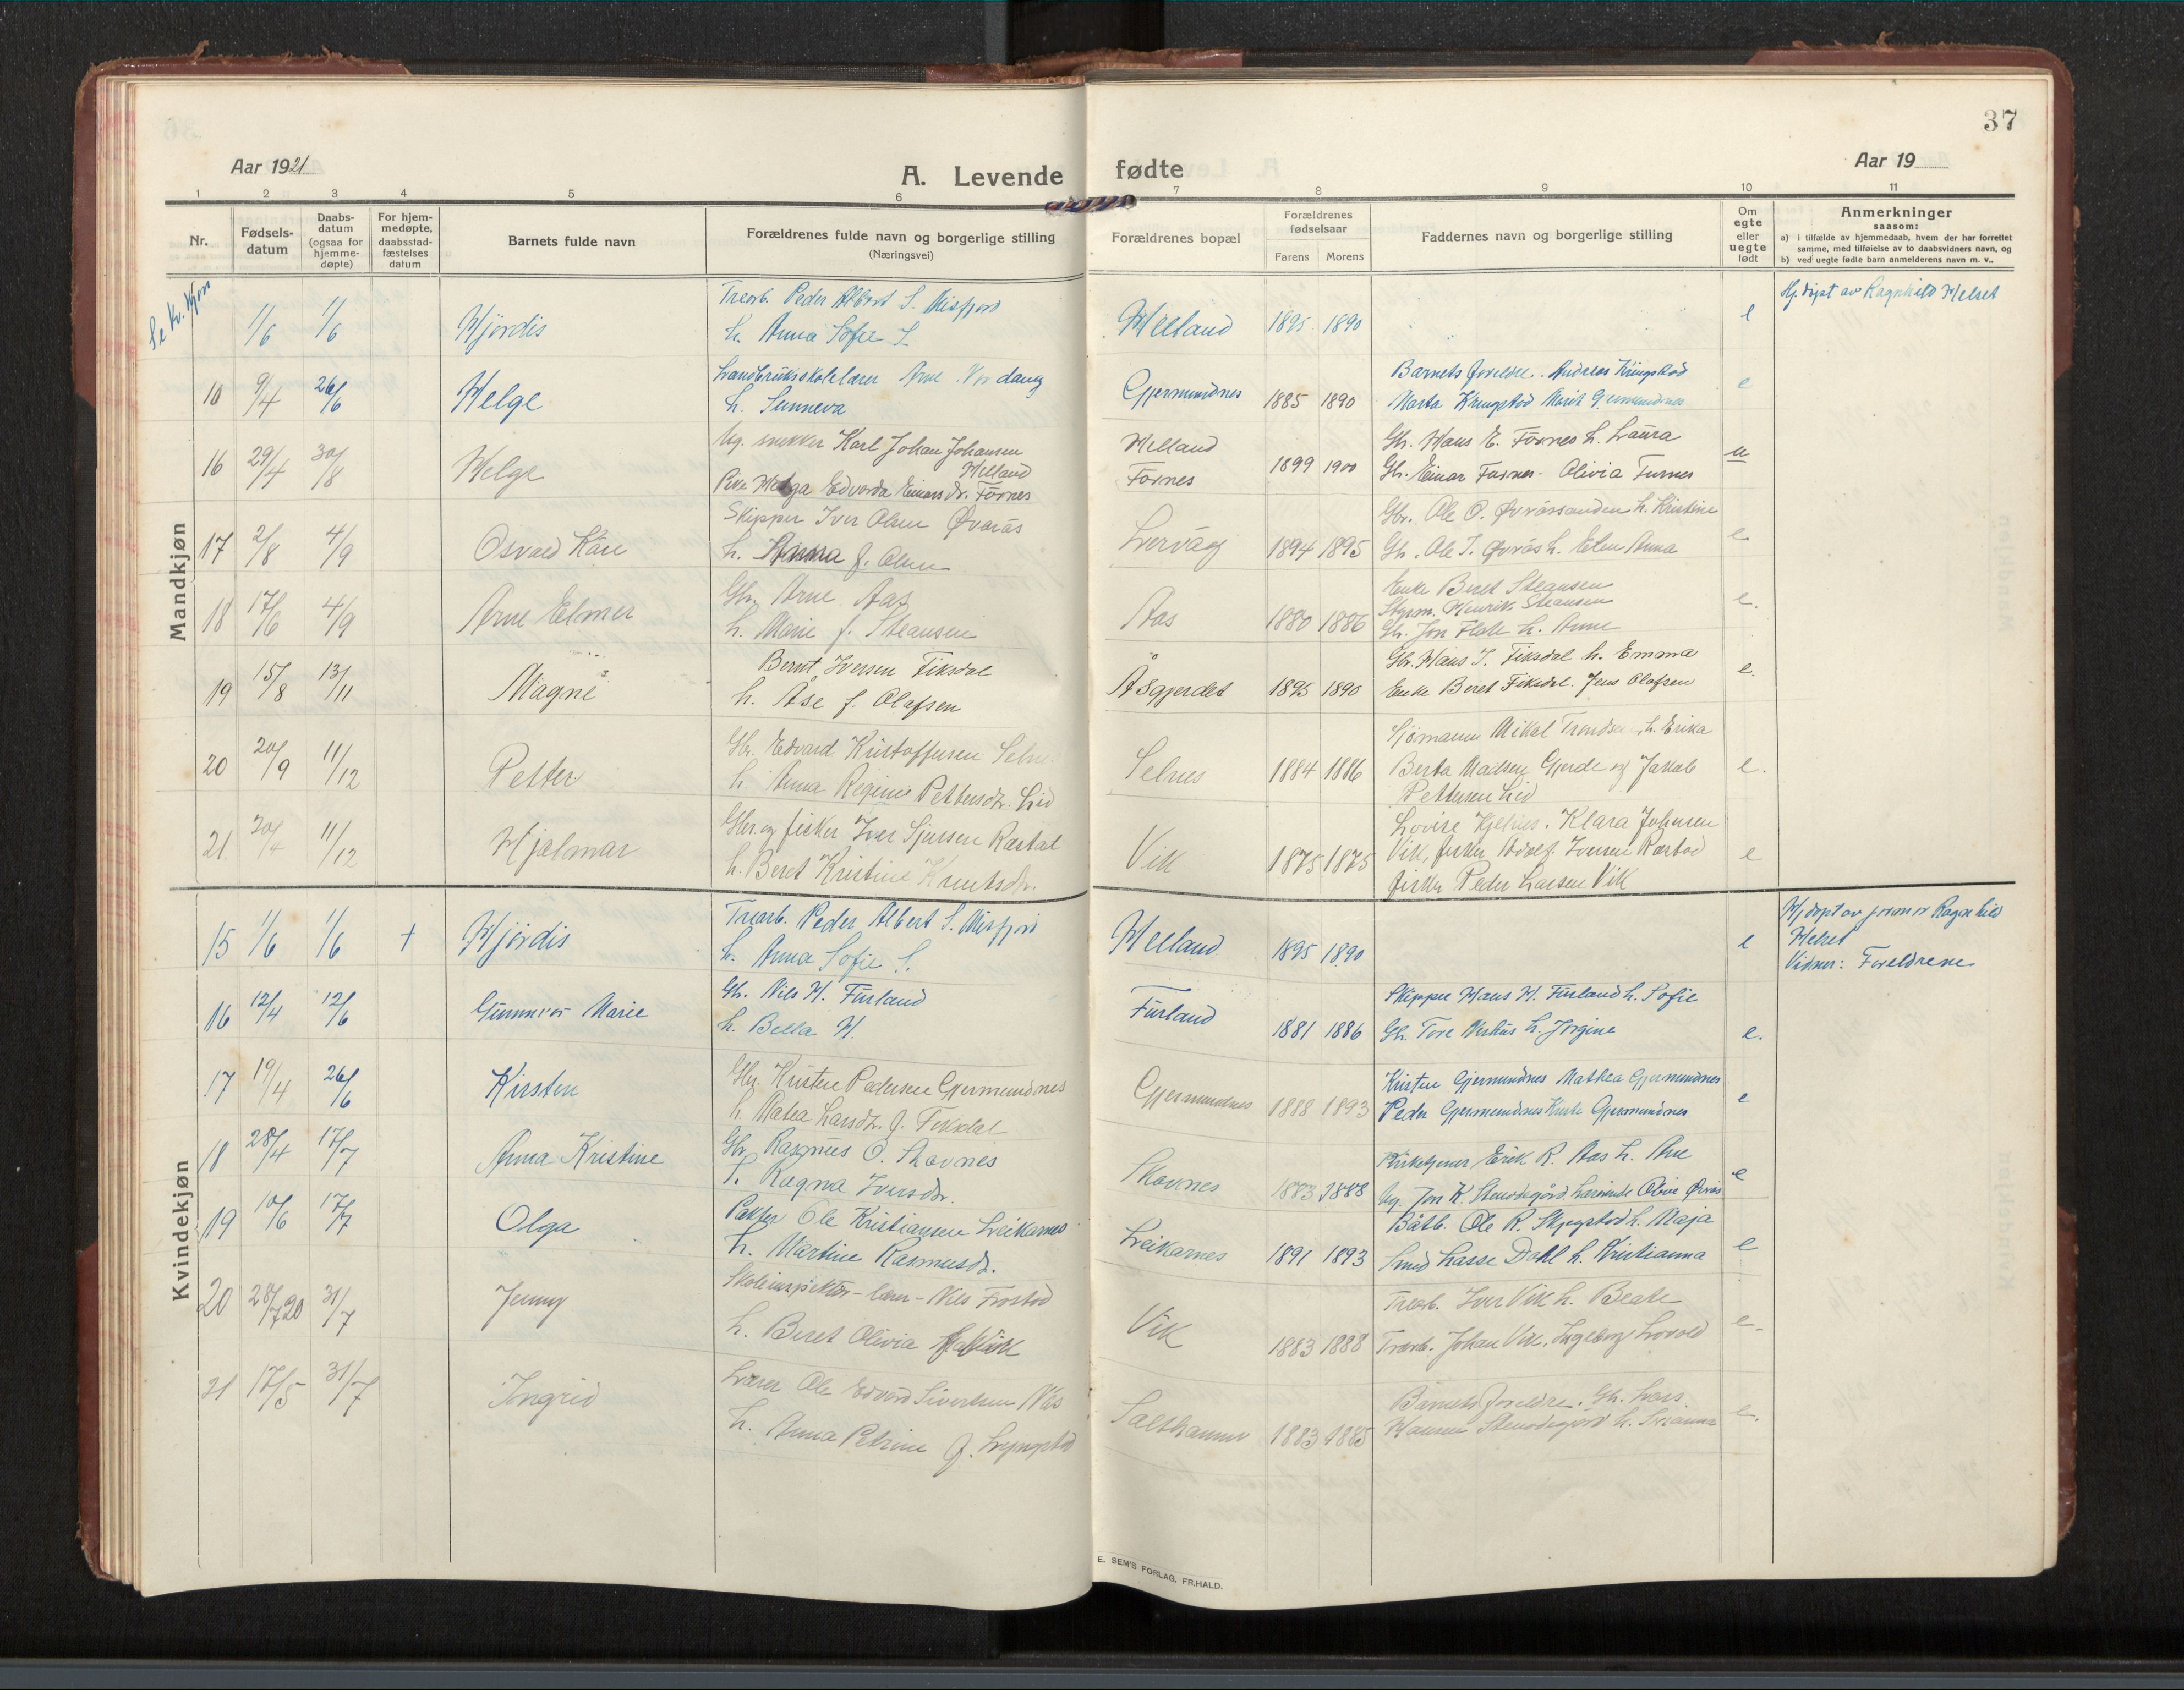 37
Aar 1921
A. Levende fødte
Aar 19
1 2 3 4 5 6 7 8 9 10 11
Nr.
Fødsels-
datum
Daabs-
datum
(ogsaa for
hjemme-
døpte)
For hjem-
medøpte,
daabsstad-
fæstelses
datum
Barnets fulde navn
Forældrenes fulde navn og borgerlige stilling
(Næringsvei)
Forældrenes bopæl
Forældrenes
fødselsaar
Farens Morens
Faddernes navn og borgerlige stilling
Om
egte
eller
uegte
født
Anmerkninger
saasom:
a) i tilfælde av hjemmedaab, hvem der har forrettet
samme, med tilføielse av to daabsvidners navn, og
b) ved uegte fødte barn anmelderens navn m. v..
Mandkjøn
Se Kv. kjøn
1/6 1/6 Hjördis
Trearb. Peder Albert S. Misfjord
h. Anna Sofie S.
Helland 1895 1890 e
Hj. døpt av Ragnhild Helset
10 9/4 26/6 Helge
Landbruksskolelærer Arne
h. Sunneva
Gjermundnes 1885 1890
Barnets foreldre. Andreas Kringstad
Marta Kringstad Marit Gjermundnes
e
16 29/4 30/8 Helge
Ug. snekker Karl Johan Johansen
Helland
Pike Helga Edvarda Einars dr. Förnes
Helland
Fornes
1899 1900
Gb. Hans E. Förnes h. Laura
Gb. Einar Furnes. Olivia Furnes
u
17 2/8 4/9 Osvald Kåre
Skipper Iver Olsen Øvarås
h. Anna f. Olsen
Lervåg 1894 1895
Gbr. Ole O. Øvråssanden h. Kristine
Gb. Ole I. Øvrås h. Elen Anna
e
18 17/6 4/9 Arne Elmer
Gb. Arne Aas
h. Marie f. Steansen
Aas 1880 1886
Enke Beret Steansen
Styrm. Henrik Steansen
Gb. Jon Flate h. Anne
e.
19 15/8 13/11 Magne
Bernt Iversen Fiksdal
h. Åse f. Olafsen
Åsgjerdet 1895 1890
Gbr. Hans I. Fiksdal h. Emma
Enke Beret Fiksdal. Jens Olafsen
e.
20 20/9 11/12 Petter
Gbr. Edvard Kristoffersen Selnes
h. Anna Regine Pettersdtr. Lid
Selnes 1884 1886
Sjømann Mikal h. Erika
Berta Madsen Gjerde og Jakob
Pettersen Lid
e.
21 20/4 11/12 Hjalmar
Gbr. og fisker Iver Sjursen Rastad
h. Beret Kristine Knutsdtr.
Vik 1875 1875
Lovise Klara Johnsen
Vik, fisker Adolf Iversen Rastad
fisker Peder Larsen Vik
e
Kvindekjøn
15 1/6 1/6 † Hjördis
Trearb. Peder Albert S. Misfjord
h. Anna Sofie S.
Helland 1895 1890 e
Hj døpt av Ragnhild
Helset
Vidner: Foreldrene
16 12/4 12/6 Gunnvor Marie
Gb. Nils H. Furland
h. Bella H.
Furland 1881 1886
Skipper Hans H. Furland h. Sofie
Gb. Tore h. Jørgine
e.
17 19/4 26/6 Kirsten
Gbr. Kristen Pedersen Gjermundnes
h. Matea Larsdtr. f. Fiksdal
Gjermundnes 1888 1893
Kristen Gjermundnes Mathea Gjermundnes
Peder Gjermundnes Gjermundnes
e
18 28/4 17/7 Anna Kristine
Gbr. Rasmus O. Skavnes
h. Ragna Iversdtr.
Skavnes 1883 1888
Kirketjener Erik R. Aas h. Ane
Ug. Jon K. Stensdegård. Lærerinde Oline Øvrås
e
19 10/6 17/7 Olga
Pakter Ole Kristiansen Leikarnes
h. Martine Rasmusdtr.
Leikarnes 1891 1893
Båtb. Ole R. Skjegstad h. Maja
Smed Lasse Dahl h. Kristianna
e
20 28/7 20 31/7 Jenny
Skoleinspektør - lærer - Nils Frostad
h. Beret Olivia
Vik 1883 1888
Trearb. Iver Vik h. Beate
Trearb. Johan Vik. Ingeborg Lovold
e
21 17/5 31/7 Ingrid
Lærer Ole Edvard Sivertsen Nås
h. Anna Petrine f. Lyngstad
Salthammer 1883 1885
Barnets foreldre. Gb. Lars
Hansen Stensdegård h. Susanna
e.
E. SEM'S FORLAG, FR.HALD.